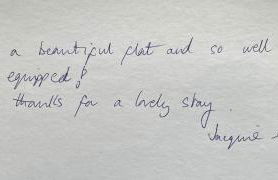 a beautiful flat and so well
equipped!
thanks for a lovely stay.
Jacquie